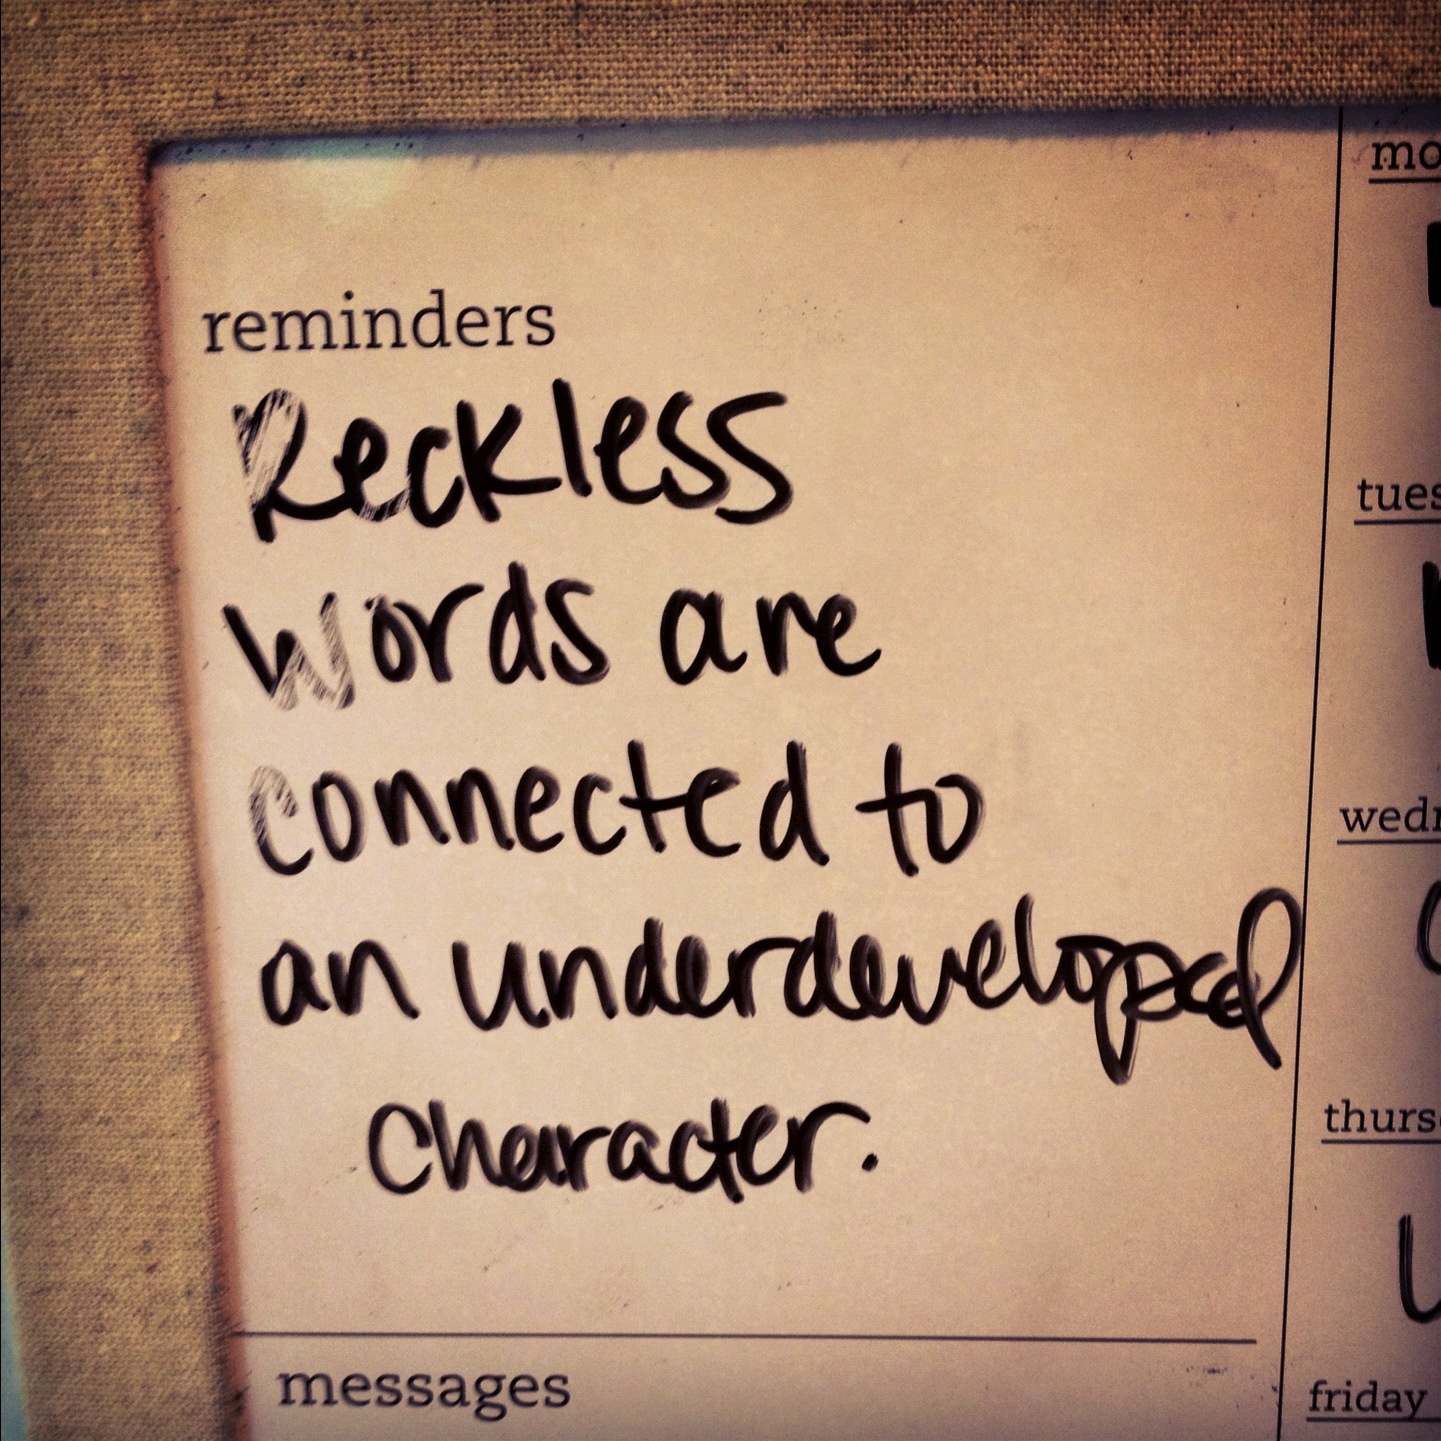 reminders
Reckless
Words are
connected to
an underdeveloped
character.
messages
mo
tues
wed
thurs
friday